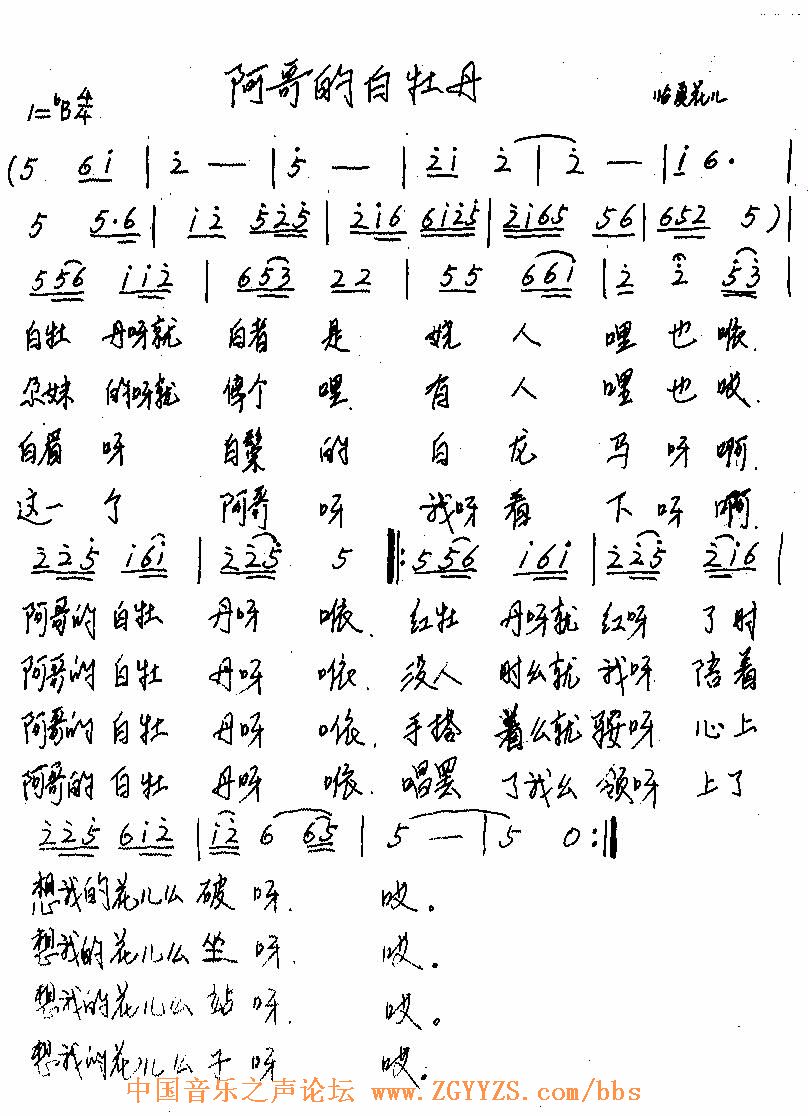 阿哥的白牡丹
1=ᵇB 4/4
临夏花儿
(5 6i | 2 — | 5 — | 2i 2 | 2 — | i 6· |
5 5·6 | i2 525 | 2i6 6i25 | 2i65 56 | 652 5 ) |
556 ii2 | 653 22 | 55 66i | 2 2 53 |
白牡 丹呀就 白者 是 娆 人 哩也 哎.
尕妹 的呀就 俦个 哩 有 人 哩也 哎.
白着 呀 白鬃 的 白 龙 马呀 啊.
这一 个 阿哥 呀 我呀 看 下呀 啊.
225 i6i | 225 5 |: 556 i6i | 225 2i6 |
阿哥的 白牡 丹呀 咴. 红牡 丹呀就 红呀 了时
阿哥的 白牡 丹呀 咴. 没人 时么就 我呀 陪着
阿哥的 白牡 丹呀 咴. 手搭 着么就 鞍呀 心上
阿哥的 白牡 丹呀 咴. 唱罢 了我么 领呀 上了
225 6i2 | i2 6 65 | 5 — | 5 0 :|
想我的 花儿么 破 呀. 哎。
想我的 花儿么 坐 呀. 哎。
想我的 花儿么 站 呀. 哎。
想我的 花儿么 子 呀. 哎.
中国音乐之声论坛 www.ZGYYZS.com/bbs